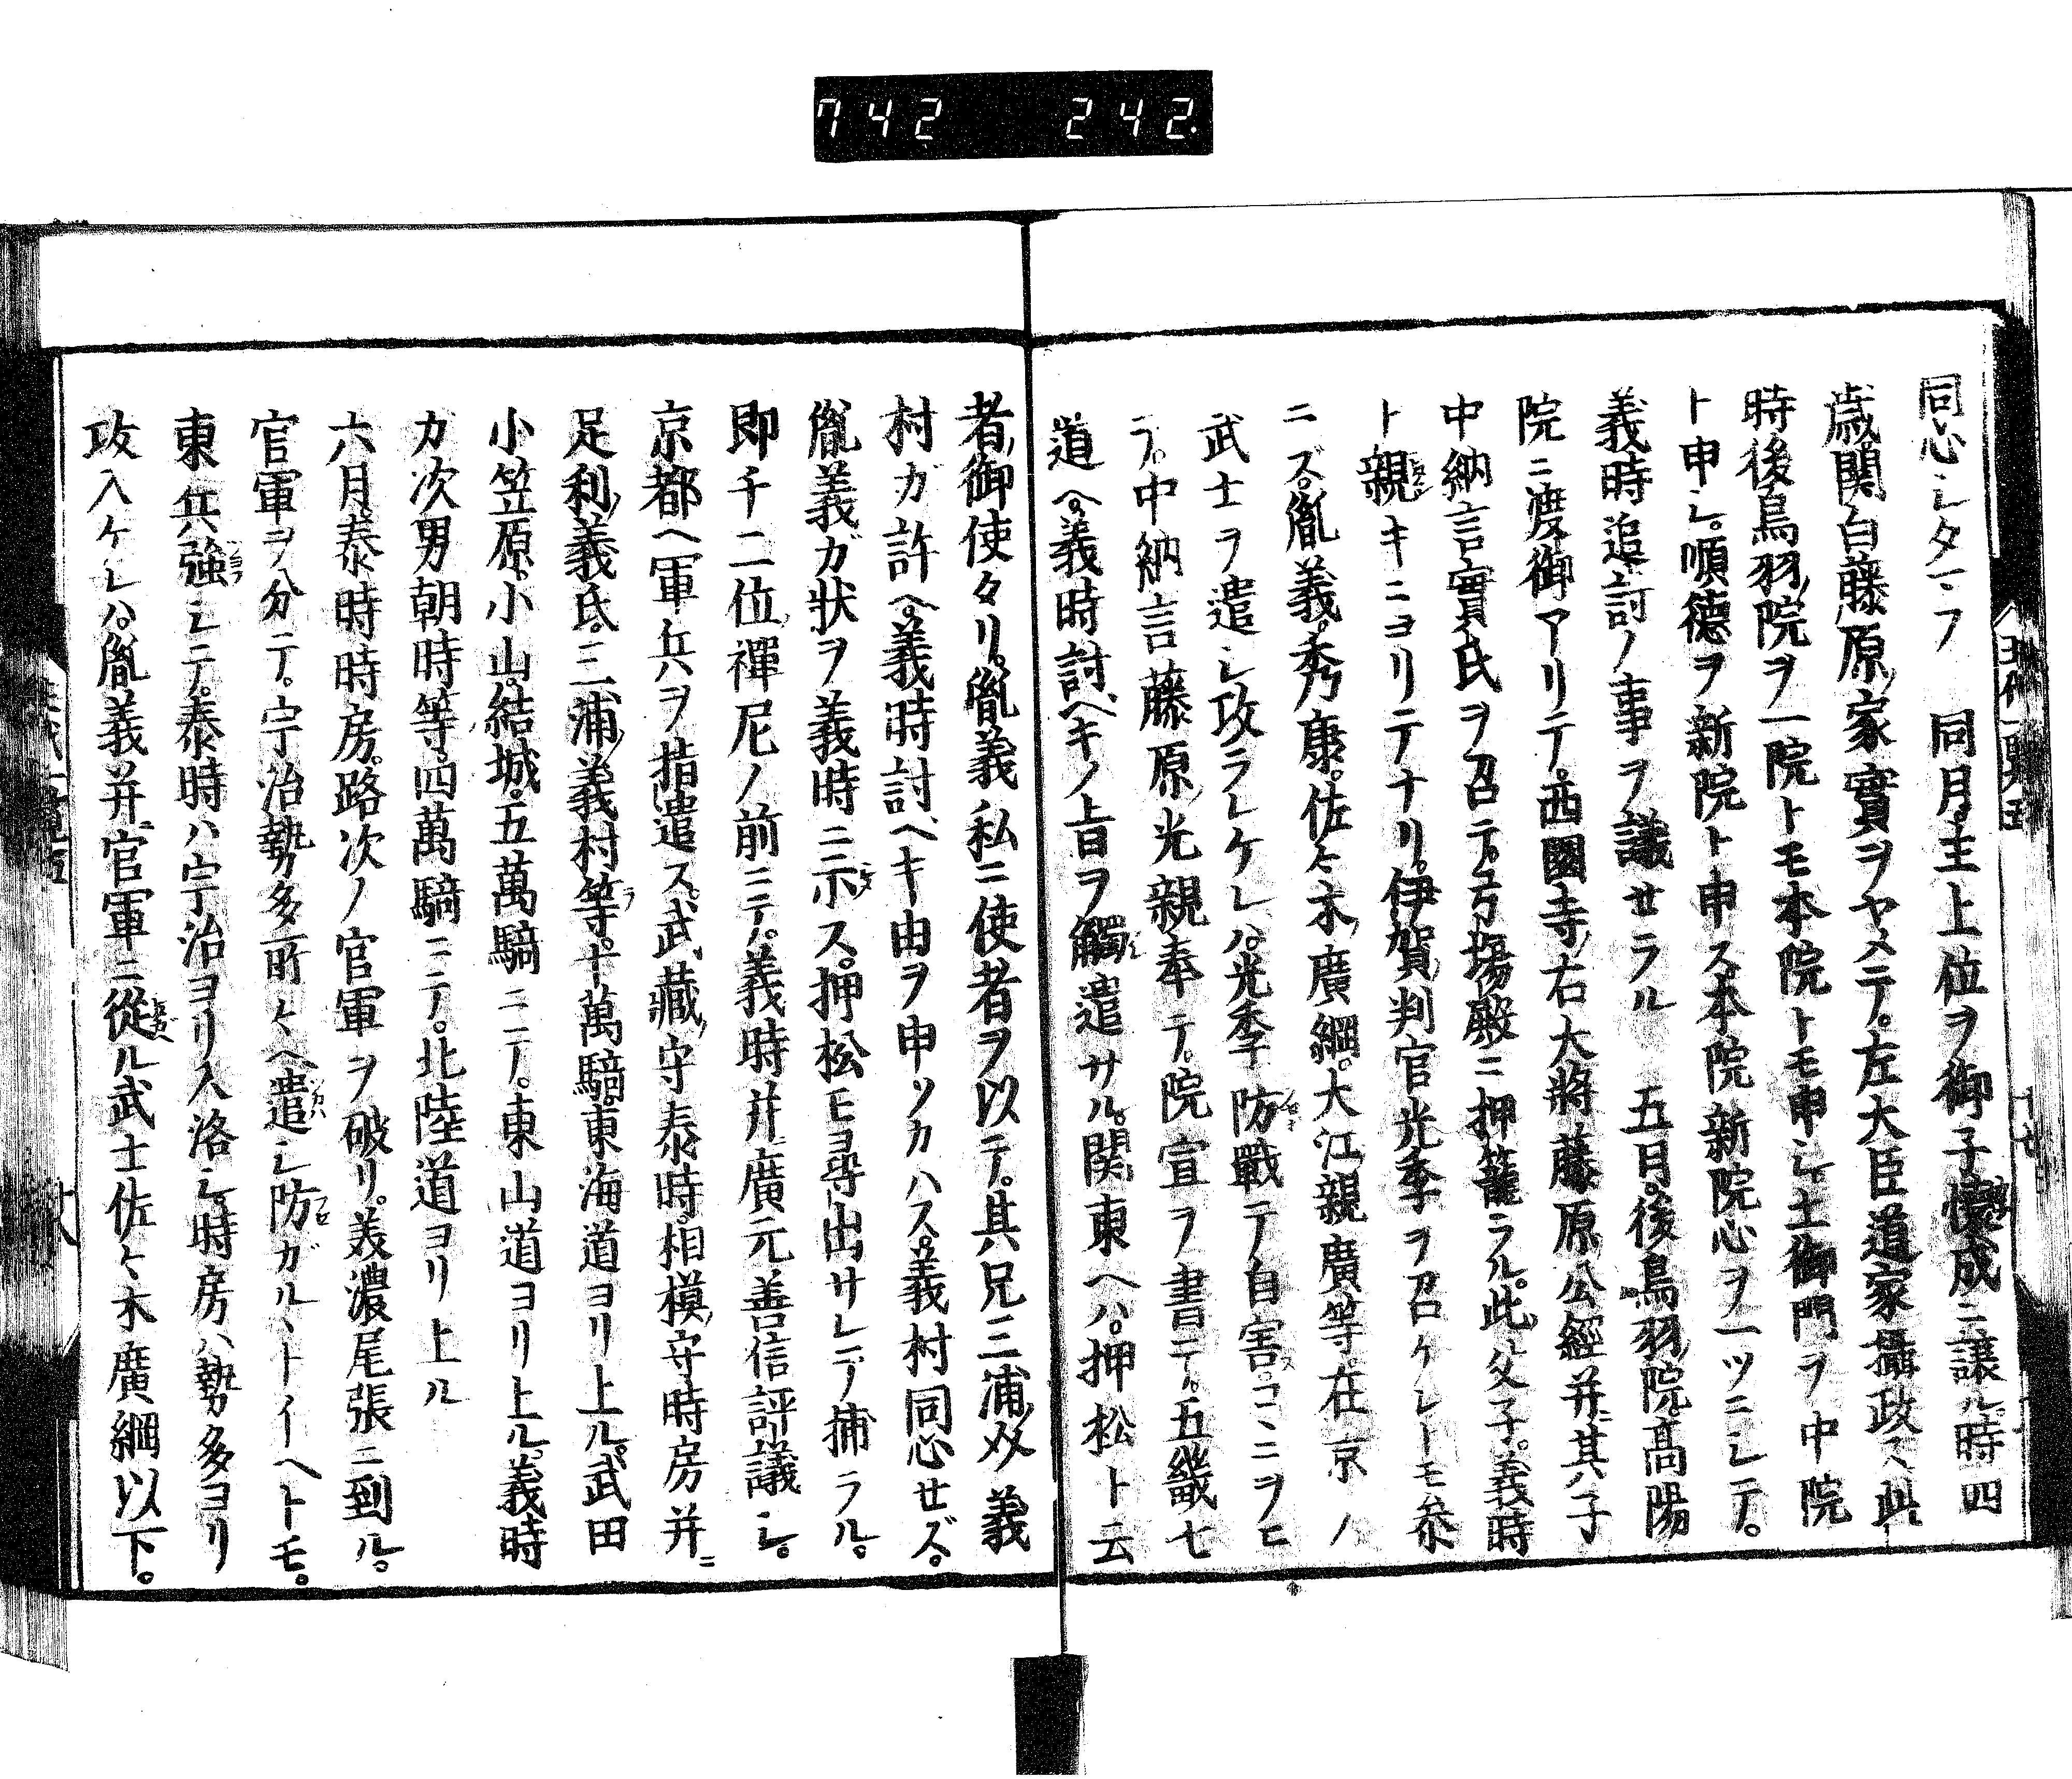 742 242.
同心シタマフ 同月主上位ヲ御子懐成ニ讓ル時四
歳關白藤原家實ヲヤメテ。左大臣道家攝政ス此
時後鳥羽院ヲ一院トモ本院トモ申シ。土御門ヲ中院
ト申シ。順德ヲ新院ト申ス本院新院心ヲ一ツニシテ。
義時追討ノ事ヲ議セラル 五月。後鳥羽院髙陽
院ニ渡御アリテ。西園寺右大將藤原公經并其子
中納言實氏ヲ召テ。弓塲殿ニ押籠ラル。此父子。義時
ト親キニヨリテナリ。伊賀判官光季ヲ召ケレトモ參
ニズ。胤義。秀康。佐々木廣綱。大江親廣等。在京ノ
武士ヲ遣シ攻ラレケレハ。光季防戰テ自害ス。コヽニヲヒ
ラ。中納言藤原光親奉テ。院宣ヲ書テ。五畿七
道ヘ。義時討ヘキノ旨ヲ觸遣サル。関東ヘハ。押松ト云
者御使タリ。胤義私ニ使者ヲ以テ。其兄三浦義
村ガ許ヘ。義時討ヘキ由ヲ申ツカハス。義村同心せズ。
胤義ガ狀ヲ義時ニ示ス。押松モ尋出サレテ捕ラル。
即チ二位禪尼ノ前ニテ。義時并廣元善信評議シ。
京都ヘ軍兵ヲ指遣ス。武藏守泰時。相模守時房并ニ
足利義氏。三浦義村等。十萬騎。東海道ヨリ上ル。武田
小笠原。小山。結城。五萬騎ニテ。東山道ヨリ上ル。義時
カ次男朝時等。四萬騎ニテ。北陸道ヨリ上ル
六月。泰時時房。路次ノ官軍ヲ破リ。美濃尾張ニ到ル。
官軍ヲ分テ。宇治勢多所々ヘ遣シ防ガルヽトイヘトモ。
東兵強シテ。泰時ハ宇治ヨリ入洛シ時房ハ勢多ヨリ
攻入ケレハ。胤義并官軍ニ從ル武士佐々木廣綱以下。